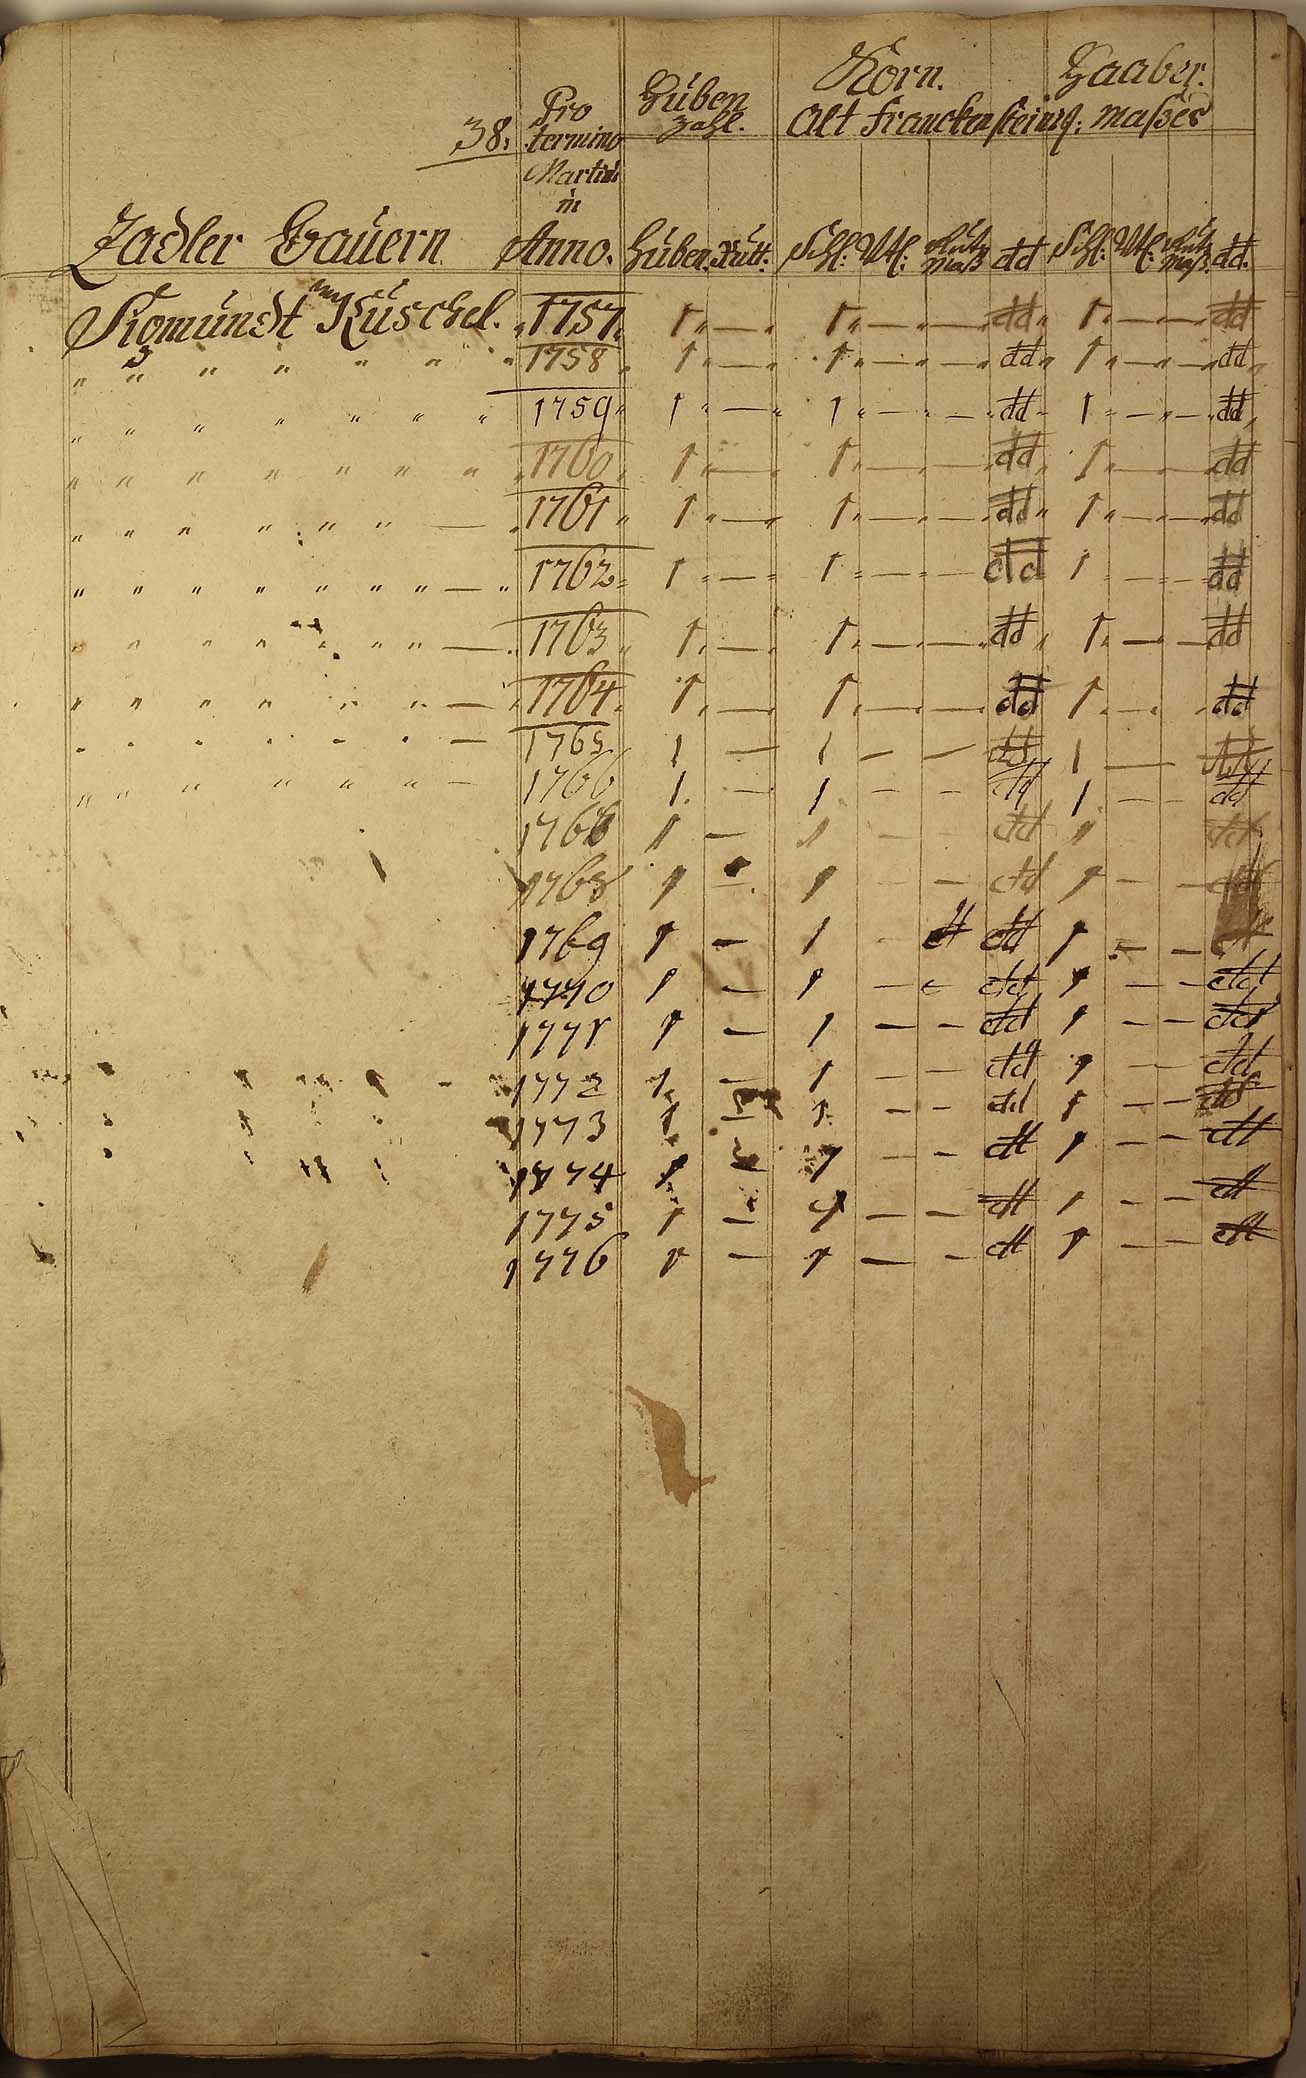 Korn. Haaber.
Pro Huben
38. termino Zahl. Alt Franckensteinig: Maßes
Martini
in
Zadler Bauern Anno. Huben. Rutt. Schl: Vtl: Mutz Maß dd Schl: Vtl: Mutz Maß. dd.
Sigmundt Küschel. 1757. 1 " — " 1 " — " — dd " 1 " — " — dd
" " " " " " " 1758 " 1 " — " 1 " — " — " dd " 1 " — " — " dd "
" " " " " " " 1759 " 1 " — " 1 " — " — " dd " 1 " — " — " dd "
" " " " " " " 1760 " 1 " — " 1 " — " — " dd " 1 " — " — " dd
" " " " " " — " 1761 " 1 " — " 1 " — " — " dd " 1 " — " — " dd
" " " " " " " — " 1762 " 1 " — " 1 " — " — dd 1 " — " — dd
" " " " " " " — " 1763 " 1 " — " 1 " — " — dd " 1 " — " — dd
" " " " " " — " 1764 " 1 " — " 1 " — " — " dd 1 " — " " dd
" " " " " " " — 1765 1 — 1 — — dd 1 — dd
" " " " " " " — 1766 1. — 1 — — dd 1 — — dd
1768 1 — 1 — — dd 1 dd
1768 1 — 1 — — dd 1 — — dd
1769 1 — 1 — dd 1 — —
1770 1 — 1 — dd 1 — — dd
1771 1 — 1 — — dd 1 — — dd
1772 1 — 1 — — dd 1 — — dd
1773 1 — 1 — — dd 1 — — dd
1774 1 — 1 — — dt 1 — — dt
1775 1 — 1 — — dt 1 — — dt
1776 1 — 1 — — dt 1 — — dt